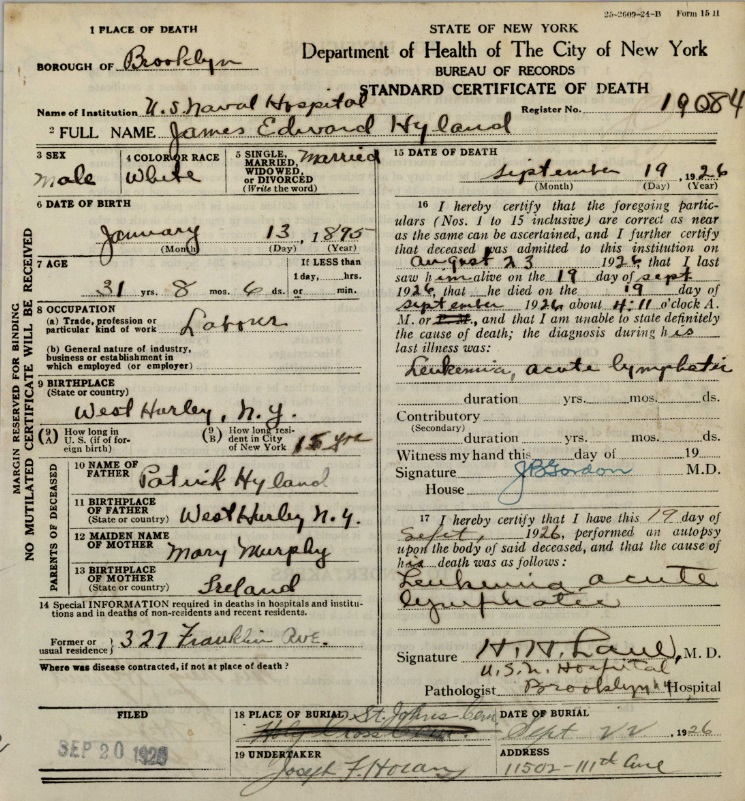 25-2609-24-B Form 15 H
1 PLACE OF DEATH
BOROUGH OF Brooklyn
STATE OF NEW YORK
Department of Health of The City of New York
BUREAU OF RECORDS
STANDARD CERTIFICATE OF DEATH
Name of Institution U.S Naval Hospital
Register No. 19084
2 FULL NAME James Edward Hyland
MARGIN RESERVED FOR BINDING
NO MUTILATED CERTIFICATE WILL BE RECEIVED
3 SEX
Male
4 COLOR OR RACE
White
5 SINGLE, Married
MARRIED,
WIDOWED,
or DIVORCED
(Write the word)
6 DATE OF BIRTH
January 13, 1895
(Month) (Day) (Year)
7 AGE
31 yrs. 8 mos. 6 ds.
If LESS than
1 day,....hrs.
or ....min.
8 OCCUPATION
(a) Trade, profession or
particular kind of work Labourer
(b) General nature of industry,
business or establishment in
which employed (or employer)
9 BIRTHPLACE
(State or country)
West Hurley, N.Y.
(9 A) How long in
U. S. (if of for-
eign birth)
(9 B) How long resi-
dent in City
of New York 15 yrs
PARENTS OF DECEASED
10 NAME OF
FATHER Patrick Hyland
11 BIRTHPLACE
OF FATHER
(State or country) West Hurley N.Y.
12 MAIDEN NAME
OF MOTHER Mary Murphy
13 BIRTHPLACE
OF MOTHER
(State or country) Ireland
14 Special INFORMATION required in deaths in hospitals and institu-
tions and in deaths of non-residents and recent residents.
Former or
usual residence } 327 Franklin Ave.
Where was disease contracted, if not at place of death?
15 DATE OF DEATH
September 19, 1926
(Month) (Day) (Year)
16 I hereby certify that the foregoing partic-
ulars (Nos. 1 to 15 inclusive) are correct as near
as the same can be ascertained, and I further certify
that deceased was admitted to this institution on
August 23 1926, that I last
saw him alive on the 19 day of Sept
1926, that he died on the 19 day of
September 1926 about 4:11 o'clock A.
M. or P. M., and that I am unable to state definitely
the cause of death; the diagnosis during his
last illness was:
Leukemia, acute lymphatic
duration yrs. mos. ds.
Contributory
(Secondary)
duration yrs. mos. ds.
Witness my hand this day of 19
Signature JB Gordon M.D.
House
17 I hereby certify that I have this 19 day of
Sept, 1926, performed an autopsy
upon the body of said deceased, and that the cause of
his death was as follows:
Leukemia acute
lymphatic
Signature H. H. Lane, M. D.
U.S.N. Hospital
Pathologist Brooklyn N.Y. Hospital
FILED
SEP 20 1926
18 PLACE OF BURIAL St. Johns Cem
Holy Cross Cem.
DATE OF BURIAL
Sept 22, 1926
19 UNDERTAKER
Joseph F. Horan
ADDRESS
11502-111th Ave